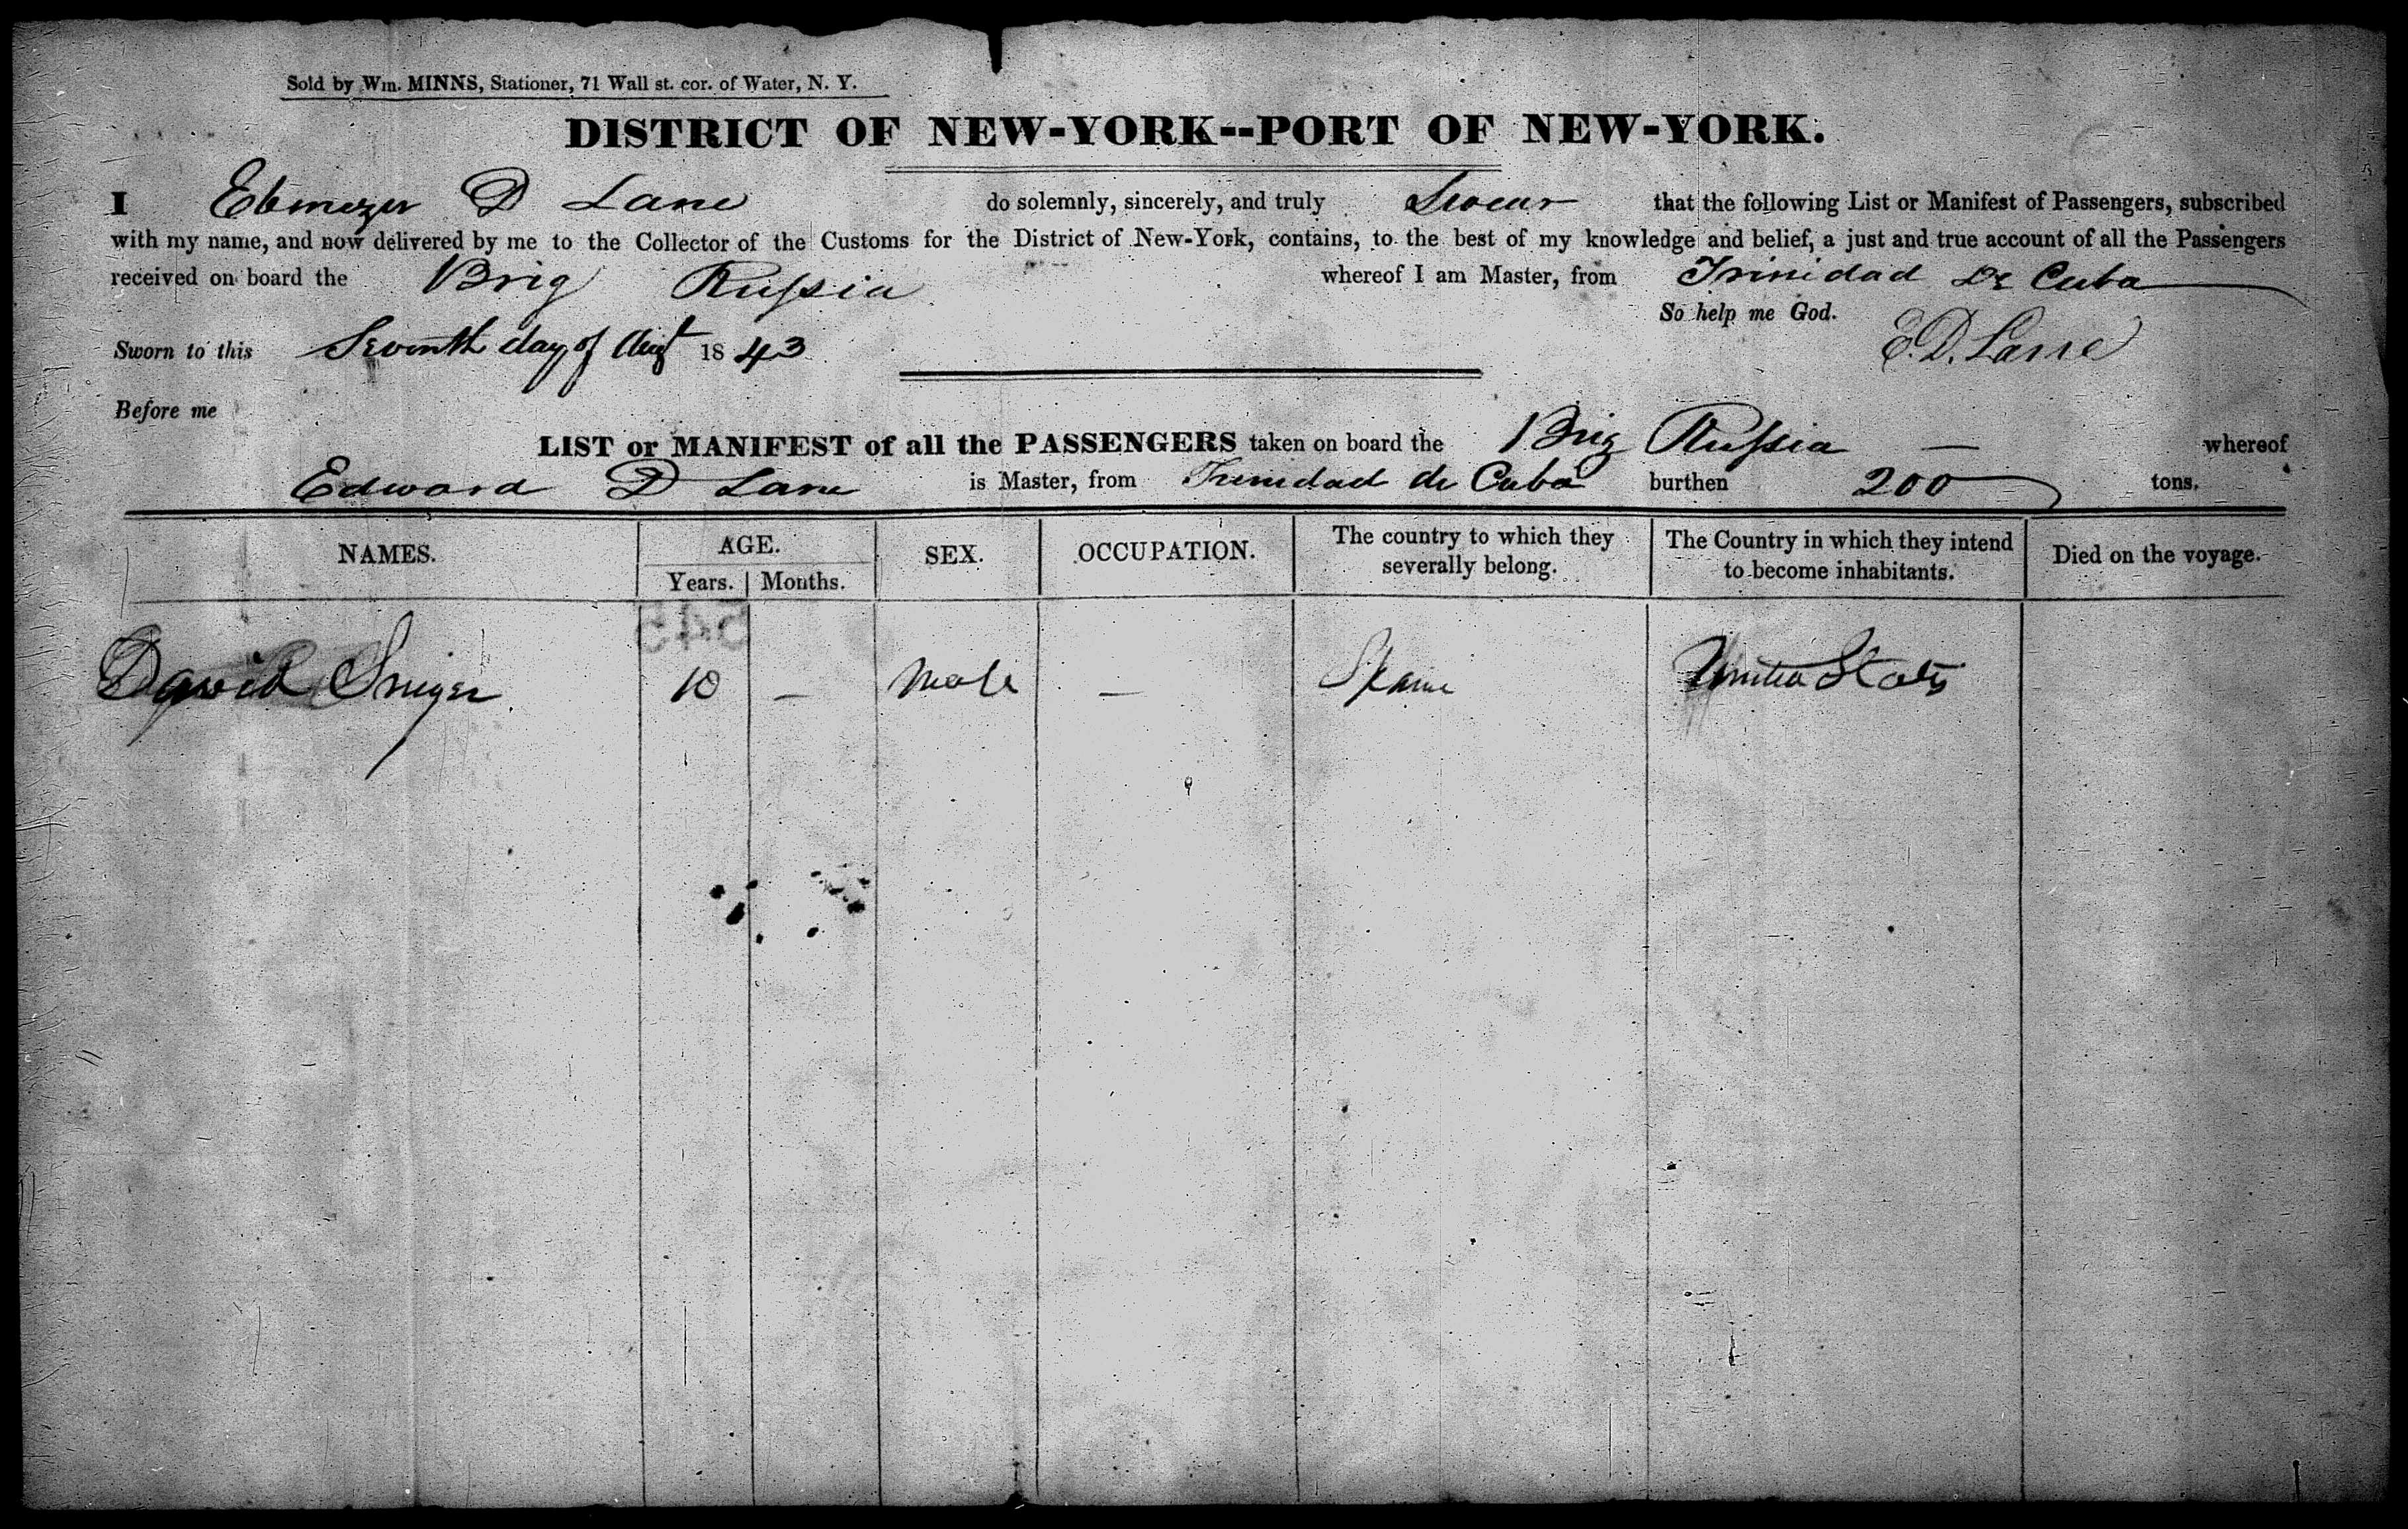 Sold by Wm. MINNS, Stationer, 71 Wall st. cor. of Water, N. Y.
DISTRICT OF NEW-YORK--PORT OF NEW-YORK.
I Ebenezer D Lane do solemnly, sincerely, and truly Swear that the following List or Manifest of Passengers, subscribed
with my name, and now delivered by me to the Collector of the Customs for the District of New-York, contains, to the best of my knowledge and belief, a just and true account of all the Passengers
received on board the Brig Russia whereof I am Master, from Trinidad De Cuba
So help me God.
Sworn to this Seventh day of Augt 1843 E. D. Lane
Before me
LIST or MANIFEST of all the PASSENGERS taken on board the Brig Russia — whereof
Edward D Lane is Master, from Trinidad de Cuba burthen 200 tons.
NAMES. AGE. Years. Months. SEX. OCCUPATION. The country to which they severally belong. The Country in which they intend to become inhabitants. Died on the voyage.
545
David 10 — Male — United States